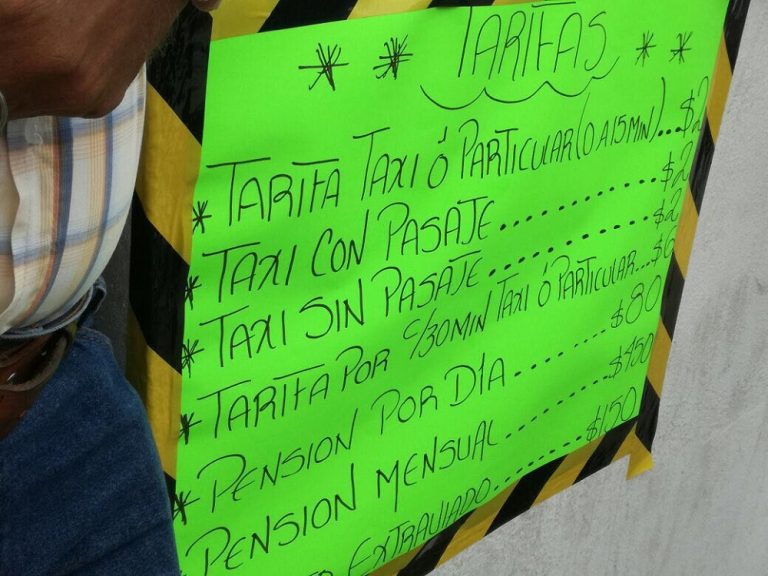 * * TARIFAS * *
* TARIFA TAXI Ó PARTICULAR (0 A 15 MIN)...$2
* TAXI CON PASAJE..........$2
* TAXI SIN PASAJE..........$2
* TARIFA POR C/30MIN TAXI Ó PARTICULAR...$6
* PENSION POR DÍA..........$80
* PENSION MENSUAL..........
EXTRAVIADO..........$150